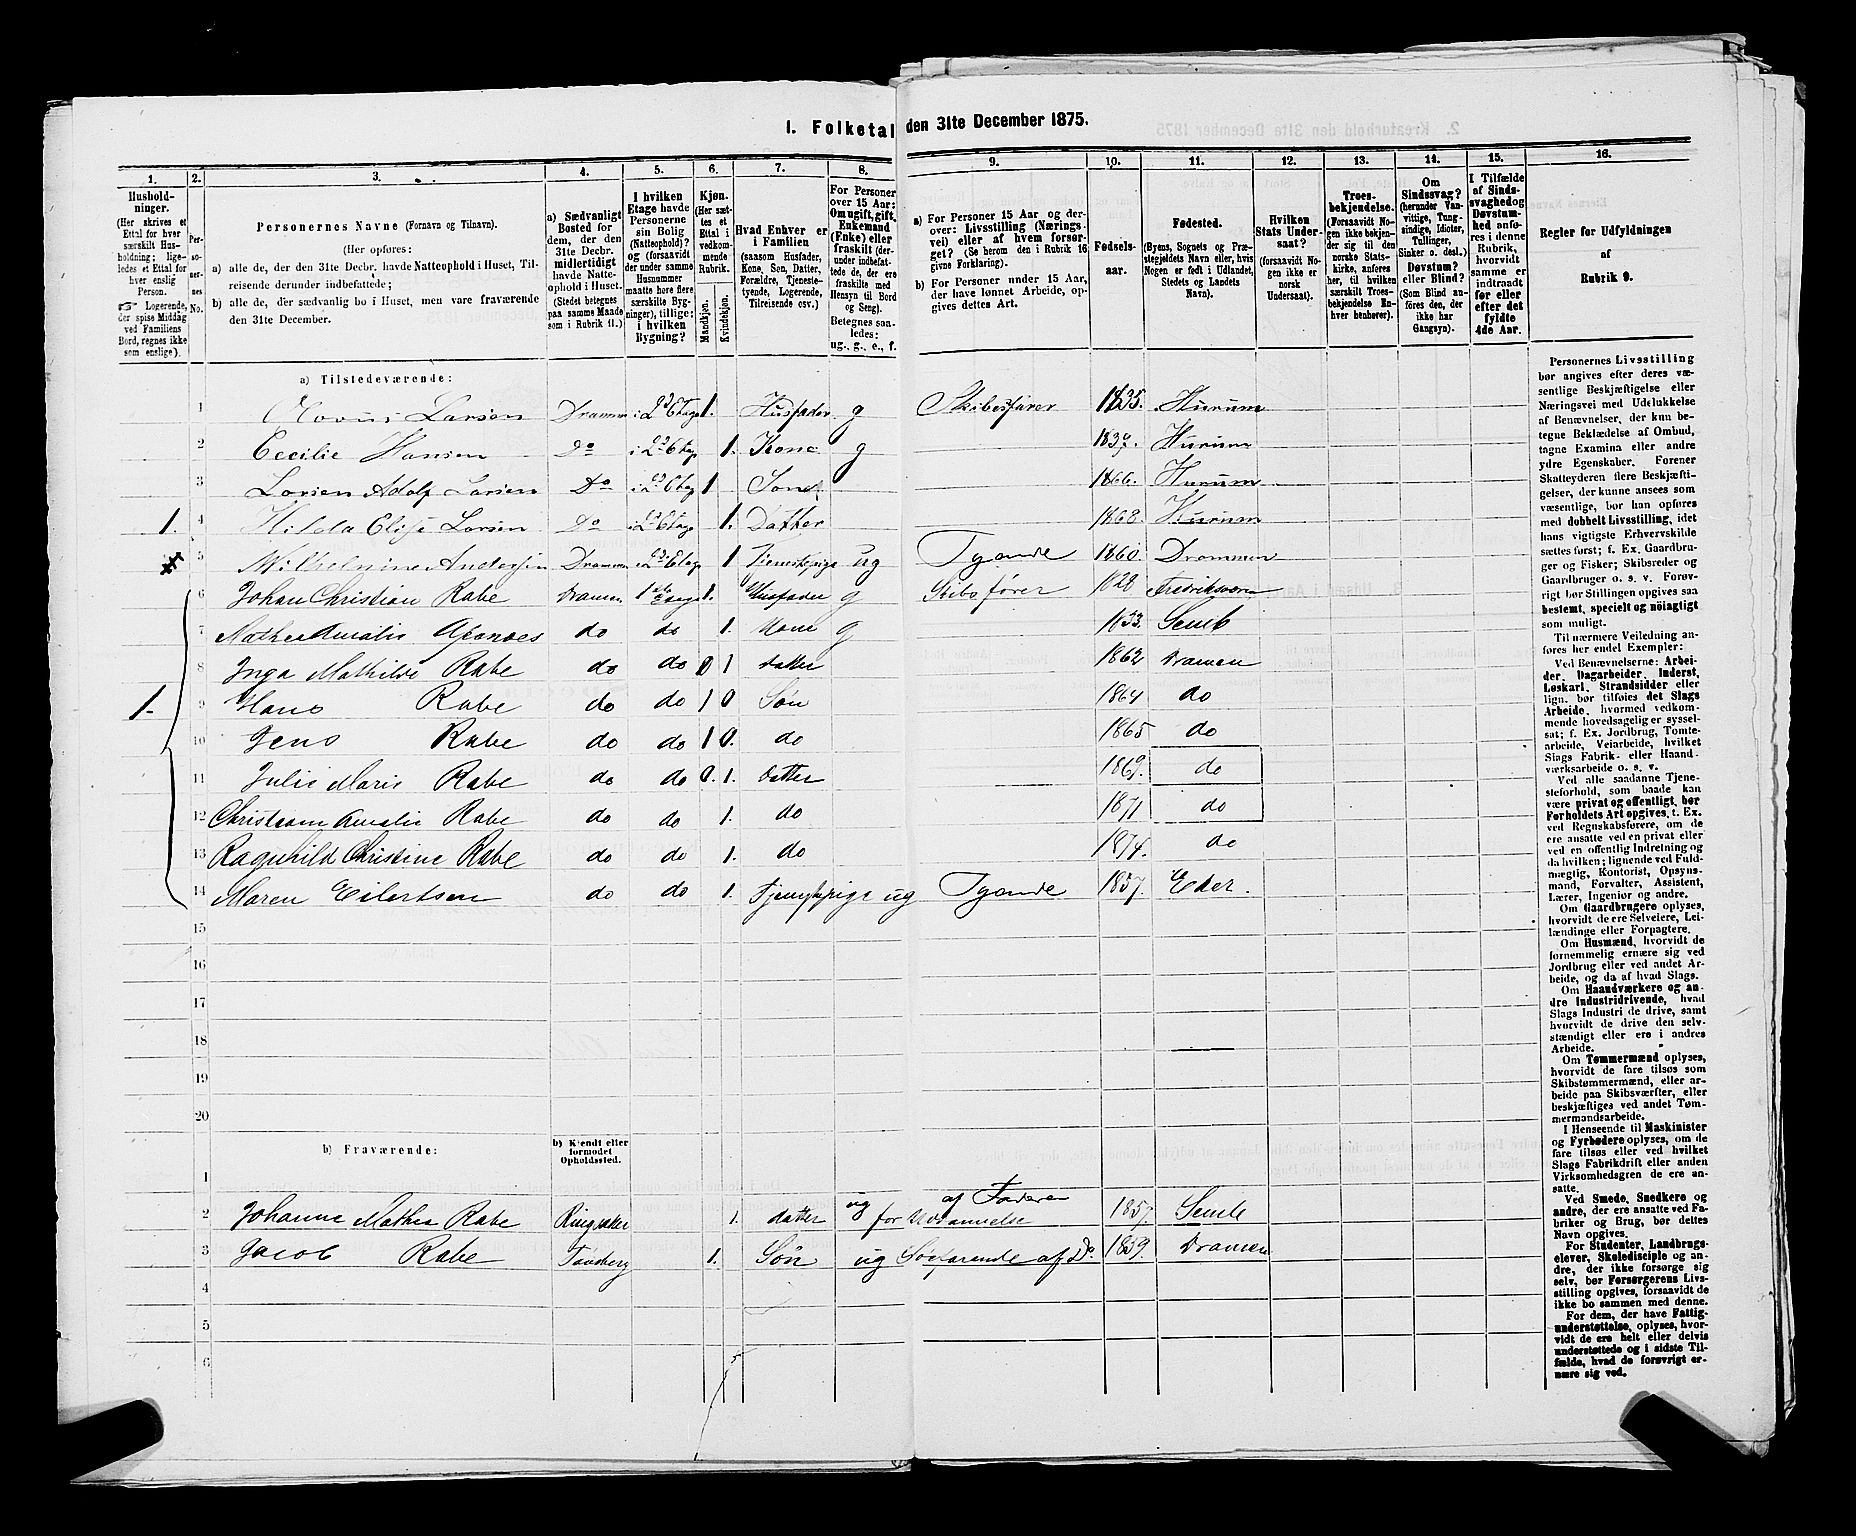 1. Folketal den 31te December 1875.
1. 2. 3. 4. 5. 6. 7. 8. 9. 10. 11. 12. 13. 14. 15. 16.
Hushold-
ninger.
(Her skrives et
Ettal for hver
særskilt Hus-
holdning; lige-
ledes et Ettal for
hver enslig
Person.
☞ Logerende,
der spise Middag
ved Familiens
Bord, regnes ikke
som enslige).
Per-
so-
ner-
nes
No.
Personernes Navne (Fornavn og Tilnavn).
(Her opføres:
a) alle de, der den 31te Decbr. havde Natteophold i Huset, Til-
reisende derunder indbefattede;
b) alle de, der sædvanlig bo i Huset, men vare fraværende
den 31te December.
a) Sædvanligt
Bosted for
dem, der den
31te Decbr.
midlertidigt
havde Natte-
ophold i Huset.
(Stedet betegnes
paa samme Maade
som i Rubrik 11.)
I hvilken
Etage havde
Personerne
sin Bolig
(Natteophold)?
og (forsaavidt
der under samme
Husnummer
maatte høre flere
særskilte Byg-
ninger), tillige:
i hvilken
Bygning?
Kjøn.
(Her sæt-
tes et
Ettal i
vedkom-
mende
Rubrik.
Mandkjøn.
Kvindekjøn.
Hvad Enhver er
i Familien
(saasom Husfader,
Kone, Søn, Datter,
Forældre, Tjeneste-
tyende, Logerende,
Tilreisende osv.)
For Personer
over 15 Aar:
Om ugift, gift,
Enkemand
(Enke) eller
fraskilt (der-
under indbefat-
tede de, der ere
fraskilte med
Hensyn til Bord
og Seng).
Betegnes saa-
ledes:
ug., g., e., f.
a) For Personer 15 Aar og der-
over: Livsstilling (Nærings-
vei) eller af hvem forsør-
get? (Se herom den i Rubrik 16
givne Forklaring).
b) For Personer under 15 Aar,
der have lønnet Arbeide, op-
gives dettes Art.
Fødsels-
aar.
Fødested.
(Byens, Sognets og Præ-
stegjeldets Navn eller, hvis
Nogen er født i Udlandet,
Stedets og Landets
Navn).
Hvilken
Stats Under-
saat?
(forsaavidt No-
gen ikke er
norsk
Undersaat).
Troes-
bekjendelse.
(Forsaavidt No-
gen ikke bekjen-
der sig til den
norske Stats-
kirke, anføres
her, til hvilken
særskilt Troes-
bekjendelse En-
hver henhører).
Om
Sindssvag?
(herunder Van-
vittige, Tung-
sindige, Idioter,
Tullinger,
Sinker o. desl.)
Døvstum?
eller Blind?
(Som Blind an-
føres den, der
ikke har
Gangsyn).
I Tilfælde
af Sinds-
svaghed og
Døvstum-
hed anfø-
res i denne
Rubrik,
hvorvidt
samme er
indtraadt
før eller
efter det
fyldte
4de Aar.
Regler for Udfyldningen
af
Rubrik 9.
a) Tilstedeværende:
1 Larsen Drammen i 2 Etage 1. Husfader g Skibsfører 1835. Hurum
2 Cecilie Hansen Do i 2 Etage 1. Kone g 1839. Hurum
3 Adolf Larsen Do i 2 Etage 1 Søn 1866. Hurum
1. 4 Hilda Elise Larsen Do i 2 Etage 1. Datter 1868. Hurum
5 Wilhelmine Andersen Drammen 2 Etage 1 Tjenestepige ug Tyende 1860. Drammen
6 Johan Christian Rabe Dramen 1ste Etage 1. Husfader g Skibsfører 1828
7 do do 1. Kone g 1833. Semb
8 Inga Mathilde Rabe do do 0 1 datter 1862 Dramen
1. 9 Hans Rabe do do 1 0 Søn 1864 do
10 Jens Rabe do do 1 0. do 1865 do
11 Julie Marie Rabe do do 0. 1. datter 1869. do
12 Amalie Rabe do do 1. do 1871 do
13 Ragnhild Christine Rabe do do 1. do 1874. do
14 Maren Eilertsen do do 1. Tjenestepige ug Tyende 1857. Eker.
15
16
17
18
19
20
b) Fraværende:
b) Kjendt eller
formodet
Opholdssted.
1
2 Johanne Mathea Rabe 1. datter ug for Uddannelse af Faderen 1857. Semb
3 Jacob Rabe Tønsberg 1. Søn ug Søfarende af Do. 1859. Dramen
4
5
6
Personernes Livsstilling
bør angives efter deres væ-
sentlige Beskjæftigelse eller
Næringsvei med Udelukkelse
af Benævnelser, der kun be-
tegne Beklædelse af Ombud,
tagne Examina eller andre
ydre Egenskaber. Forener
Skatteyderen flere Beskjæfti-
gelser, der kunne ansees som
væsentlige, bor han opføres
med dobbelt Livsstilling, idet
hans vigtigste Erhvervskilde
sættes først; f. Ex. Gaardbru-
ger og Fisker; Skibsreder og
Gaardbruger o. s. v. Forøv-
rigt bør Stillingen opgives saa
bestemt, specielt og nöiagtigt
som muligt.
Til nærmere Veiledning an-
føres her endel Exempler:
Ved Benævnelserne: Arbei-
der, Dagarbeider, Inderst,
Løskarl, Strandsidder eller
lign. bør tilføies det Slags
Arbeide, hvormed vedkom-
mende hovedsagelig er syssel-
sat; f. Ex. Jordbrug, Tomte-
arbeide, Veiarbeide, hvilket
Slags Fabrik- eller Haand-
værksarbeide o. s. v.
Ved alle saadanne Tjene-
steforhold, som baade kan
være privat og offentligt, bør
Forholdets Art opgives, t. Ex.
ved Regnskabsførere, om de
ere ansatte ved en privat eller
ved en offentlig Indretning og
da hvilken; lignende ved Fuld-
mægtig, Kontorist, Opsyns-
mand, Forvalter, Assistent,
Lærer, Ingeniør og andre.
Om Gaardbrugere oplyses,
hvorvidt de ere Selveiere, Lei-
lændinge eller Forpagtere.
Om Husmænd, hvorvidt de
fornemmelig ernære sig ved
Jordbrug eller ved andet Ar-
beide, og da af hvad Slags.
Om Haandværkere og an-
dre Industridrivende, hvad
Slags Industri de drive, samt
hvorvidt de drive den selv-
stændigt eller ere i andres
Arbeide.
Om Tømmermænd oplyses,
hvorvidt de fare tilsøs som
Skibstømmermænd, eller ar-
beide paa Skibsværfter, eller
beskjæftiges ved andet Tøm-
mermandsarbeide.
I Henseende til Maskinister
og Fyrbødere oplyses, om de
fare tilsøs eller ved hvilket
Slags Fabrikdrift eller anden
Virksomhedsgren de ere an-
satte.
Ved Smede, Snedkere og
andre, der ere ansatte ved Fa-
briker og Brug, bør dettes
Navn opgives.
For Studenter, Landbrugs-
elever, Skoledisciple og an-
dre, der ikke forsørge sig
selv, bør Forsørgerens Livs-
stilling opgives, forsaavidt de
ikke bo sammen med denne.
For dem, der have Fattig-
understøttelse, oplyses, hvor-
vidt de ere helt eller delvis
understøttede og i sidste Til-
fælde, hvad de forøvrigt er-
nære sig ved.